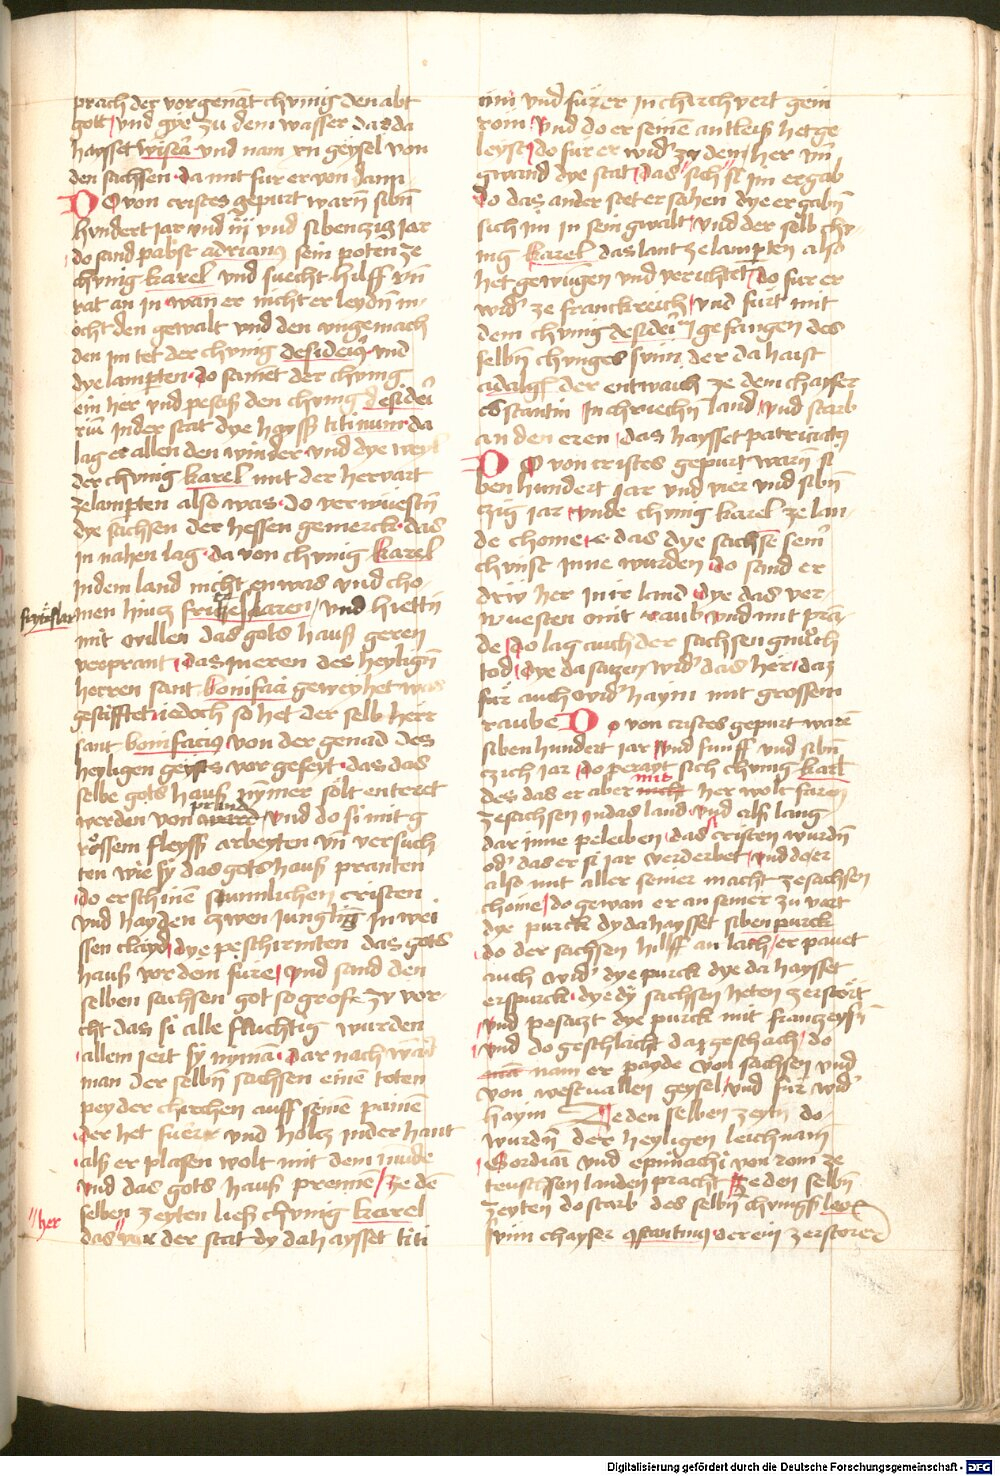 prach der vorgenāt chunig den abt
gott und gye zu dem wasser daz da
haysset wiserā und nam yn geysel von
den sachsen da mit fur er von dann
Do von cristes gepurt warn sibn̄
hundert jar und iij und sibenczig jar
do sand pabst adrianus sein poten ze
chunig karel und suecht hilff un̄
rat an in wan er nicht erleydn̄ m
ocht den gewalt und den ungemach
den im tet der chunig desideriꝰ und
dye lampten do samet der chunig
ein her und pesaß den chunig deside
riū in der stat dye hayss titinum da
lag er allen den winder und dye weyl
der chunig karel mit der hervart
ze lampten also was do verwuestn̄
dye sachsen der hessen gemerck das
in nahen lag da von chunig karel
in dem land nicht enwas und cho
fryteslar
men hincz frikeslaren und hiettn̄
mit willen das gots hauß geren
verprant das in eren des heylign̄
herren sant bonifacii geweyhet was
gestifftet iedoch so het der selb herr
sant bonifacius von der genad des
heyligen geysts vor geseyt das das
selbe gots hauß nymer solt enteret
prand
werden von und do si mit g
rossem fleyss arbeyten un̄ versuch
ten wie sy das gots hauß pranten
do erschinē sumlichen cristen
und hayden zwen jungling in wei
ssen clayd dye peschirmten das gots
hauß vor dem fure und sand den
selben sachsen got so groß zu vor
cht das si alle fluchtig wurden
allein jert sy nymā dar nach wā
man der selbn̄ sachsen einē toten
pey der chirchen auff seinē painē
der het fuerr und holtz in der hant
als er plasen wolt mit dem mūde
und das gots hauß prennē ze dē
selben zeyten ließ chunig karel
her
das vor der stat dy da haysset titi
num und fur er in chirchvert gein
rom und do er seinē antleiß het ge
leyst do fur er wid' zu dem her un̄
gwand dye stat das sich si im ergab
do das ander stet ersahen dye ergabn̄
sich im in sein gwalt und der selb chu
nig karel das lant ze lampten also
het gewūgen und verichtet do fur er
wid' ze franckreich und furt mit
dem chunig desideriū gefangen des
selbn̄ chunges sunn der da haist
adalgß der entwaich ze dem chayser
cōstantin in chriechn̄ land und starb
an den eren das haysset patriciatꝰ
Do von cristes gepurt warn̄ si
ben hundert jar und vier und sibn̄
czig jar unde chunig karel ze lan
de chome e das dye sachsē sein̄
chunst inne wurden do sand er
driu her in ir land dye das ver
wuesten mit raub und mit pran
de do lag auch der sachsen gnuch
tod dye da sazen wid' das her daz
fur auch wid' haym mit grossem
raube Do von cristes gepurt warē
siben hundert jar und funff und sibn̄
czich jar do perayt sich chunig karl
mit
des das er aber her wolt faren
ze sachsen in das land und als lang
dar inne peleiben das cristen wurdn̄
od' das er si gar verderbet und do er
also mit aller seiner macht ze sachsen
chome do gewan er an seiner zu vart
dye purck dy da haysset siben purck
do der sachsen hilff an lach er pauet
auch wid' dye purck dye da haysset
erspurck dye dy sachsen heten zerstort
und pesaczt dye purck mit franczeysn̄
und do geschlacht daz geschach do
nam er payde von sachsen und
von westuallen geysel und fur wid'
haym Ze den selben zeytn̄ do
wurdn̄ der heyligen leichnam
Gordiani und epimachi von rom ze
teuschen landen pracht ze den selbn̄
zeyten do starb des selbn̄ chunigs leo
sunn chayser cōstantinus der ein zerstorer
Digitalisierung gefördert durch die Deutsche Forschungsgemeinschaft - DFG